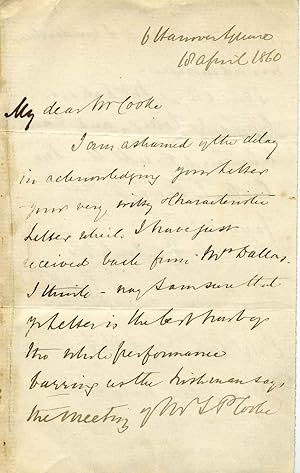 6 Hanover Square
18 April 1860
My dear Mr Cooke
I am ashamed of the delay
in acknowledging your letter
your very witty & characteristic
letter which I have just
received back from Mrs Dallas.
I think - nay I am sure that
yr letter is the best part of
the whole performance
barring as the Irishman says
the meeting of Mr T P Cooke